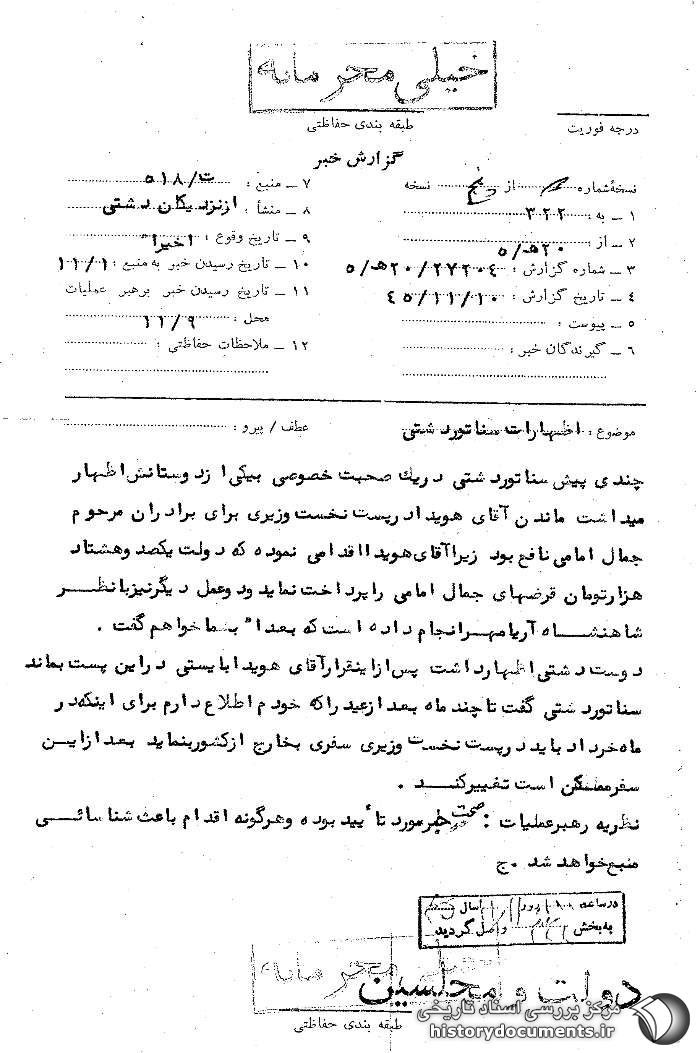 خیلی محرمانه
طبقه بندی حفاظتی
درجه فوریت
گزارش خبر
نسخهٔ شماره از پنج نسخه
۱ ـ به : ۳۲۲
۲ ـ از ۲۰ هـ/۵
۳ ـ شماره گزارش : ۲۷۲۰۴/۲۰هـ/۵
۴ ـ تاریخ گزارش : ۴۵/۱۱/۱۰
۵ ـ پیوست :
۶ ـ گیرندگان خبر :
۷ ـ منبع : ت/۵۱۸
۸ ـ منشأ : ازنزدیکان دشتی
۹ ـ تاریخ وقوع : اخیرا"
۱۰ ـ تاریخ رسیدن خبر به منبع : ۱۱/۱
۱۱ ـ تاریخ رسیدن خبر برهبر عملیات
محل : ۱۱/۹
۱۲ ـ ملاحظات حفاظتی :
موضوع : اظهارات سناتوردشتی
عطف / پیرو :
چندی پیش سناتوردشتی دریک صحبت خصوصی بیکی ازدوستانش اظهار
میداشت ماندن آقای هویدادرپست نخست وزیری برای برادران مرحوم
جمال امامی نافع بود زیراآقای هویدااقدامی نموده که دولت یکصدوهشتاد
هزارتومان قرضهای جمال امامی راپرداخت نماید ودوعمل دیگرنیزبانظر
شاهنشاه آریامهرانجام داده است که بعدا" بشماخواهم گفت .
دوست دشتی اظهارداشت پس ازاینقرارآقای هویدابایستی دراین پست بماند
سناتوردشتی گفت تاچندماه بعدازعیدراکه خودم اطلاع دارم برای اینکه در
ماه خردادبایددرپست نخست وزیری سفری بخارج ازکشوربنماید بعدازایـن
سفرممکن است تغییرکنـد .
نظریه رهبرعملیات : صحت خبرمورد تأیید بوده وهرگونه اقدام باعث شناسائـی
منبع خواهد شد .ج
درساعه روز سال
به بخش ۳۲۱ واصل گردید
خیلی محرمانه
دولت و مجلسین
طبقه بندی حفاظتی
مرکز بررسی اسناد تاریخی
historydocuments.ir